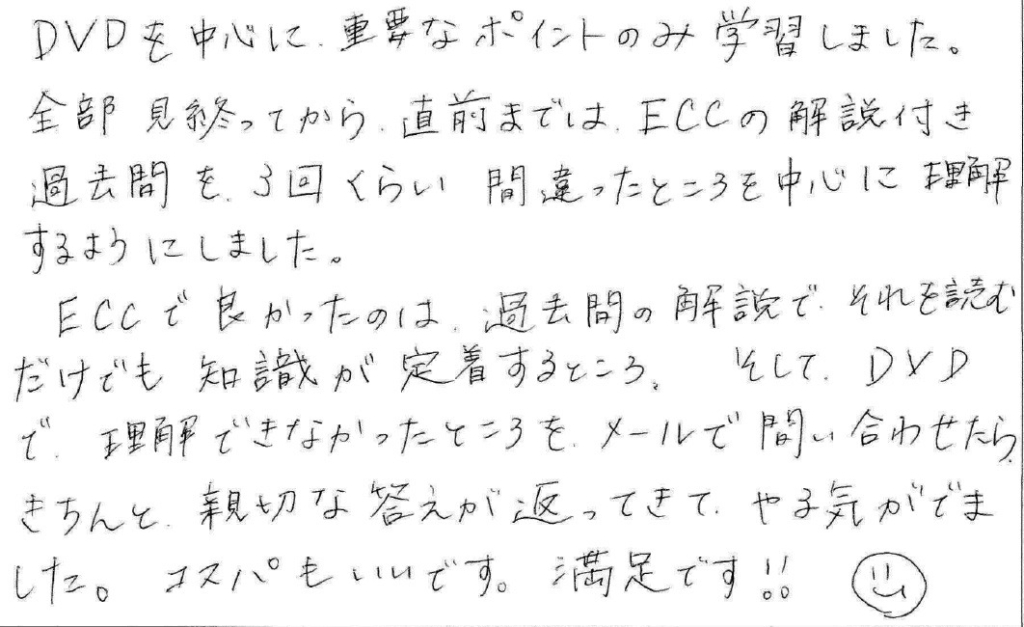 DVDを中心に、重要なポイントのみ学習しました。
全部見終ってから、直前までは、ECCの解説付き
過去問を、3回くらい間違ったところを中心に理解
するようにしました。
ECCで良かったのは、過去問の解説で、それを読む
だけでも知識が定着するところ。そして、DVD
で、理解できなかったところを、メールで問い合わせたら、
きちんと、親切な答えが返ってきて、やる気がでま
した。コスパもいいです。満足です!!